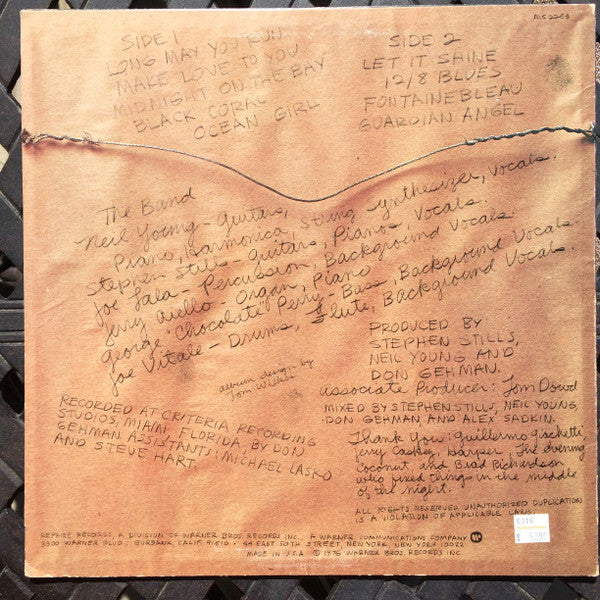 MS 2253
SIDE 1
LONG MAY YOU RUN
MAKE LOVE TO YOU
MIDNIGHT ON THE BAY
BLACK CORAL
OCEAN GIRL
SIDE 2
LET IT SHINE
12/8 BLUES
FONTAINEBLEAU
GUARDIAN ANGEL
The Band
Neil Young - Guitars,
Piano, Harmonica, String Synthesizer, Vocals.
Stephen Stills - Guitars, Pianos, Vocals.
Joe Lala - Percussion, Background Vocals
Jerry Aiello - Organ, Piano
George 'Chocolate' Perry - Bass, Background Vocals.
Joe Vitale - Drums, Flute, Background Vocals.
album design by
Tom Wilkes
RECORDED AT CRITERIA RECORDING
STUDIOS, MIAMI, FLORIDA, BY DON
GEHMAN. ASSISTANTS: MICHAEL LASKO
AND STEVE HART.
PRODUCED BY
STEPHEN STILLS,
NEIL YOUNG AND
DON GEHMAN.
associate Producer: Tom Dowd
MIXED BY STEPHEN STILLS, NEIL YOUNG,
DON GEHMAN AND ALEX SADKIN.
Thank You: Guillermo Giachetti,
Jerry Harper, The Evening
Coconut, and Brad Richardson
who fixed things in the middle
of the night.
ALL RIGHTS RESERVED. UNAUTHORIZED DUPLICATION
IS A VIOLATION OF APPLICABLE LAWS.
REPRISE RECORDS, A DIVISION OF WARNER BROS. RECORDS INC., A WARNER COMMUNICATIONS COMPANY
3300 WARNER BLVD., BURBANK, CALIF. 91510 • 44 EAST 50TH STREET, NEW YORK, NEW YORK 10022
MADE IN U.S.A. © 1976 WARNER BROS. RECORDS INC.